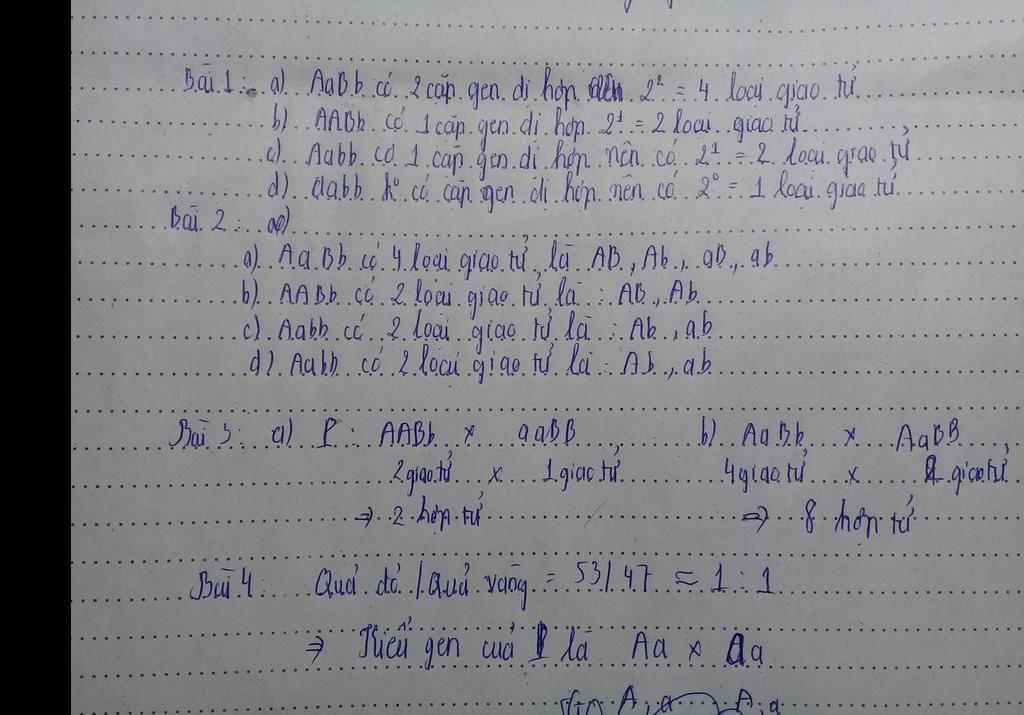 Bài 1: a) AaBb có 2 cặp gen dị hợp 2² = 4 loại giao tử
b) AABb có 1 cặp gen dị hợp 2¹ = 2 loại giao tử
c) Aabb có 1 cặp gen dị hợp nên có 2¹ = 2 loại giao tử
d) aabb k° có cặp gen dị hợp nên có 2⁰ = 1 loại giao tử
Bài 2:
a) AaBb có 4 loại giao tử là AB, Ab, aB, ab
b) AABb có 2 loại giao tử là: AB, Ab
c) Aabb có 2 loại giao tử là: Ab, ab
d) Aabb có 2 loại giao tử là: Ab, ab
Bài 3: a) P: AABb x aaBB b) AaBb x AaBB
2 giao tử x 1 giao tử 4 giao tử x 2 giao tử
=> 2 hợp tử => 8 hợp tử
Bài 4: Quả đỏ / Quả vàng = 53/47 ≈ 1:1
=> Kiểu gen của P là Aa x Aa
A, a A, a